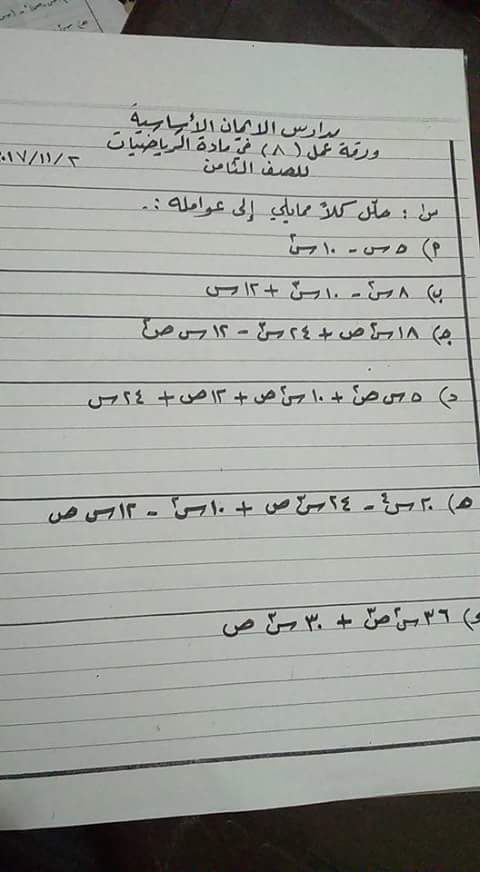 مدارس الايمان الأساسية
ورقة عمل (٨) في مادة الرياضيات
٢٠١٧/١١/٢
للصف الثامن
س١ : حلّل كلاً مما يلي إلى عوامله :-
أ) ٥س - ١٠س٢
ب) ٨س٢ - ١٠س٣ + ١٢س
ج) ١٨س٢ص + ٢٤س٢ - ١٢س ص٢
د) ٥س ص٢ + ١٠س٢ص + ١٢ص + ٢٤س
هـ) ٢٠س٤ - ٢٤س٣ص + ١٠س٢ - ١٢س ص
و) ٣٦س٢ص٣ + ٣٠س٣ص